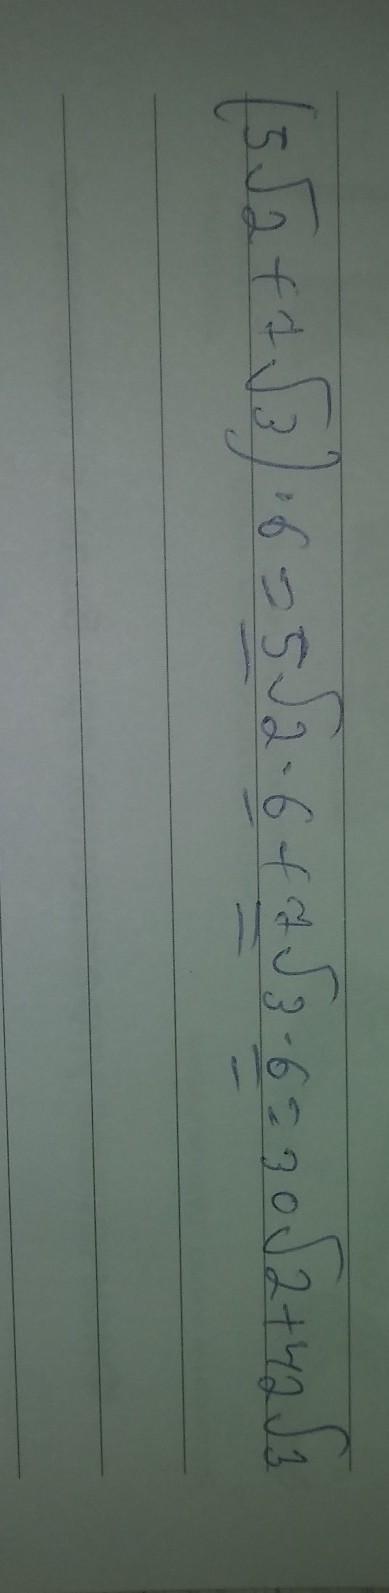 (5√2 + 7√3) · 6 = 5√2 · 6 + 7√3 · 6 = 30√2 + 42√3